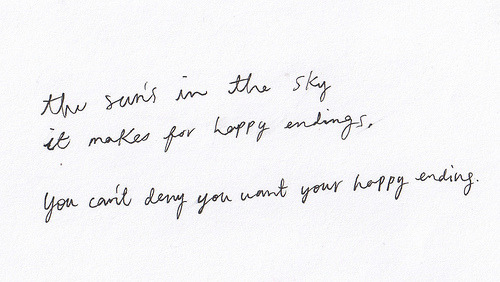 the sun's in the sky
it makes for happy endings,
You can't deny you want your happy ending.